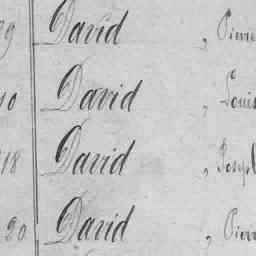 29 David , Pierre
40 David , Louis
218 David , Joseph
20 David , Pierre